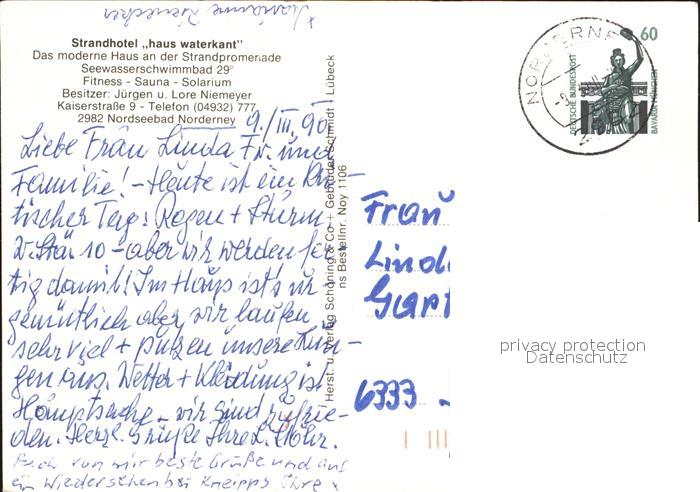 Marianne
Strandhotel „haus waterkant"
Das moderne Haus an der Strandpromenade
Seewasserschwimmbad 29°
Fitness - Sauna - Solarium
Besitzer: Jürgen u. Lore Niemeyer
Kaiserstraße 9 - Telefon (04932) 777
2982 Nordseebad Norderney
9./III. 90
Liebe Frau Linda Fr. und
Familie! - Heute ist ein
tischer Tag: Regen + Sturm
10 - aber wir werden fer-
tig damit! Im Haus ist's ur-
gemütlich aber wir laufen
sehr viel + putzen unsere Lun-
gen aus. Wetter + Kleidung ist
Hauptsache - wir sind zufrie-
den. Herzl. Grüße Ihre L.
Auch von mir beste Grüße und auf
ein Wiedersehen bei Kneipps Ihre x
Herst. u. Verlag Schöning & Co + Gebrüder Schmidt · Lübeck
ns Bestellnr. Noy 1106
NORDERNE
DEUTSCHE BUNDESPOST
60
BAVARIA MÜNCHEN
Frau
Lind
6333
privacy protection
Datenschutz